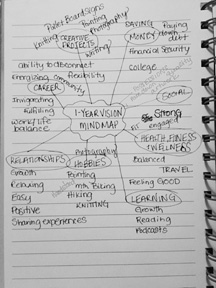 Pallet Board Signs
Painting
Photography?
Knitting
CREATIVE
PROJECTS
Writing?
SAVING
Paying
MONEY
down
debt
Financial Security
College
Ability to disconnect
Flexibility
Energizing
Community
CAREER
Invigorating
Fulfilling
Work/Life
balance
1-YEAR VISION
MINDMAP
SOCIAL
Strong
engaged
HEALTH, FITNESS
& WELLNESS
Balanced
TRAVEL
Feeling GOOD
RELATIONSHIPS
Growth
Relaxing
Easy
Positive
Sharing experiences
Photography
HOBBIES
Painting
mtn. Biking
Hiking
KNITTING
LEARNING
Growth
Reading
Podcasts